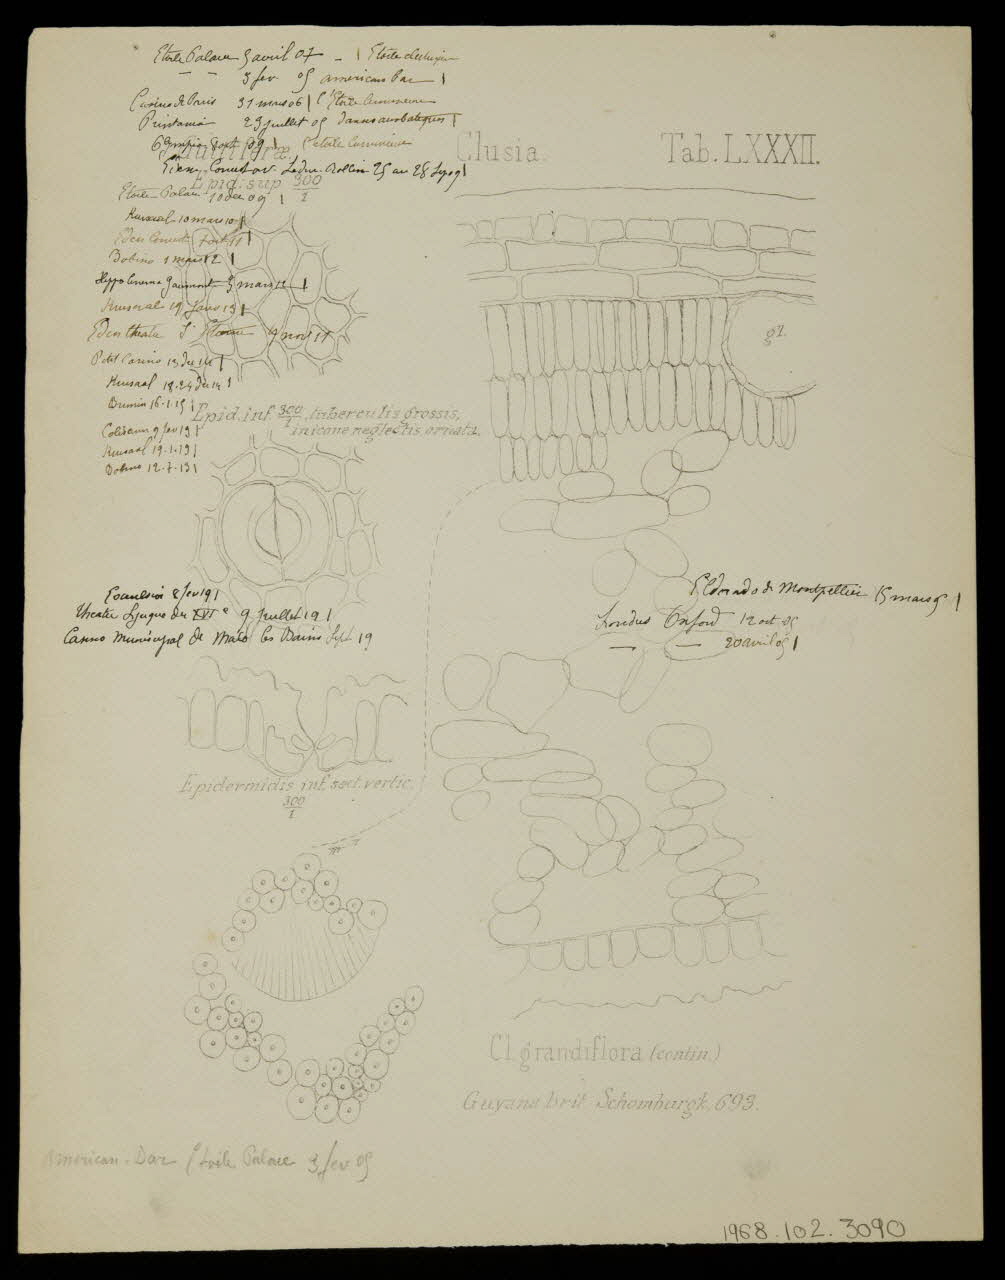 Etoile Palace 3 avril 07 - | Etoile electrique
- - 3 fev 05 american bar |
Casino de Paris 31 mars 06 | l'Etoile lumineuse
Printania 29 juillet 05 danses acrobatiques |
Olympia 09 | l'etoile lumineuse
Guttiferæ.
Clusia. Tab. LXXXII.
Eden Ledru-Rollin 25 au 28
Epid. sup 300/1
Etoile Palace 10 dec 09 |
Kursaal 10 mars 10 |
Eden 11 |
Bobino 1 mars 12 |
Hippo Cinema Gaumont 3 mars 12 |
Kursaal 19 janv 13 |
Eden theatre St Etienne 9 nov 11
gl.
Petit Casino 13 dec 14 |
Kursaal 18.24 dec 14 |
16.1.15 |
Epid. inf. 300/1, tuberculis grossis,
in icone neglectis ornata.
Coliseum 9 fev 19 |
Kursaal 19.1.19 |
Bobino 12.7.19 |
8 fev 19 |
Theatre Lyrique du XVIe 9 juillet 19 |
Casino Municipal de les Bains Sept 19
Eldorado de Montpellier 15 mars |
Londres Oxford 12 oct 05
- - 20 avril 05 |
Epidermidis inf. sect. vertic.
300/1
m
Cl. grandiflora (contin.)
Guyana brit. Schomburgk. 693.
American-Bar Etoile Palace 3 fev 05
1968.102.3090